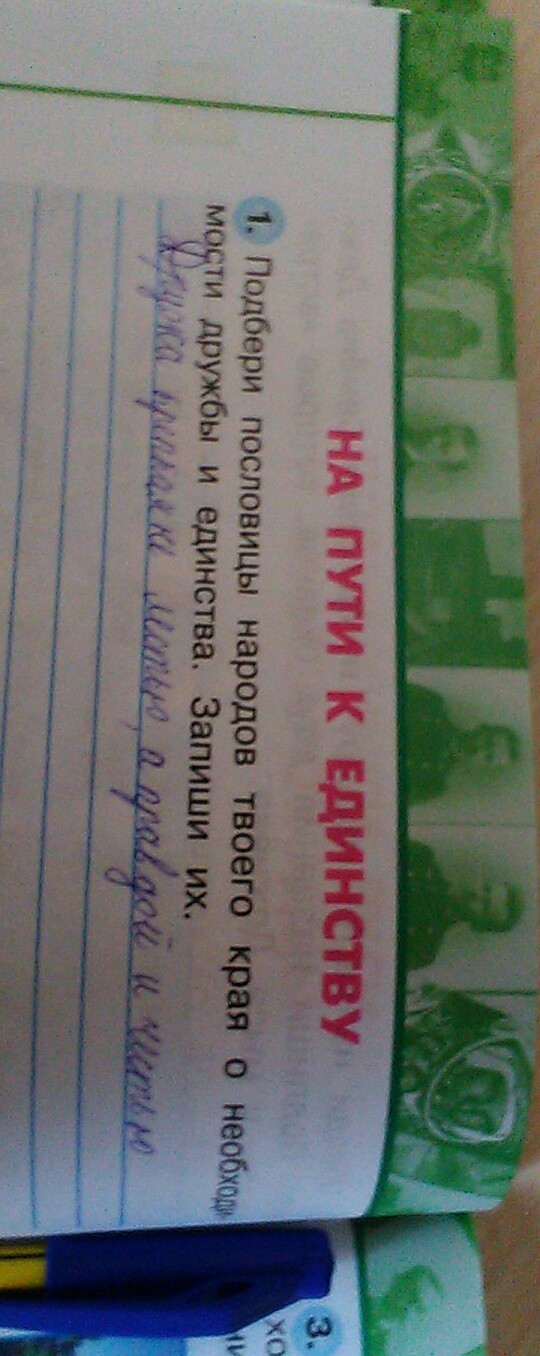 НА ПУТИ К ЕДИНСТВУ
1. Подбери пословицы народов твоего края о необходи-
мости дружбы и единства. Запиши их.
Дружба крепка не лестью, а правдой и честью
3.
хо